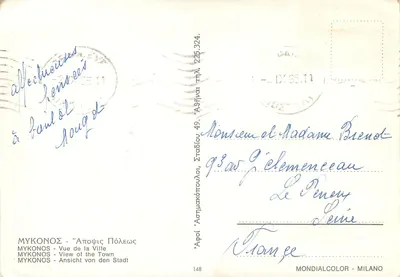 affectueuses
pensées
à
ΜΥΚΟΝΟΣ - Ἄποψις Πόλεως
MYKONOS - Vue de la Ville
MYKONOS - View of the Town
MYKONOS - Ansicht von den Stadt
Ἀφοί Ἀστημακόπουλοι, Σταδίου 49, Ἀθῆναι τηλ. 225.324.
148
Monsieur et Madame Brenot
93 av G. Clemenceau
Le Perreux
Seine
France
MONDIALCOLOR - MILANO